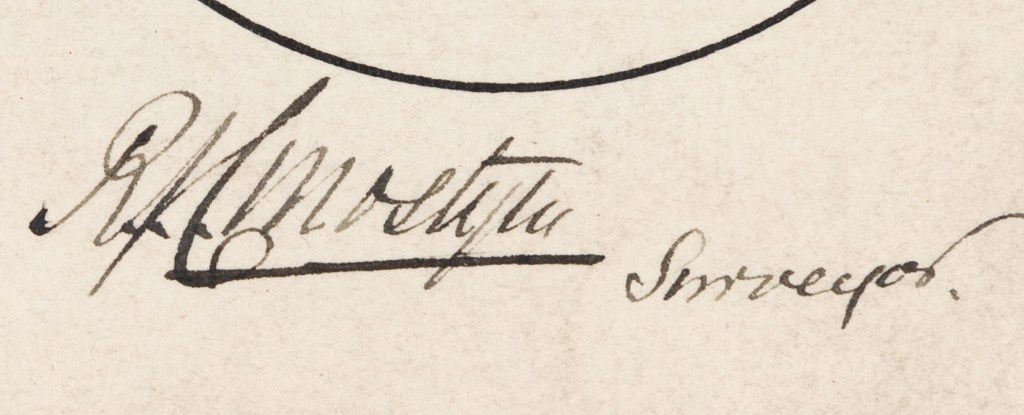 R H Mostyn Surveyor.